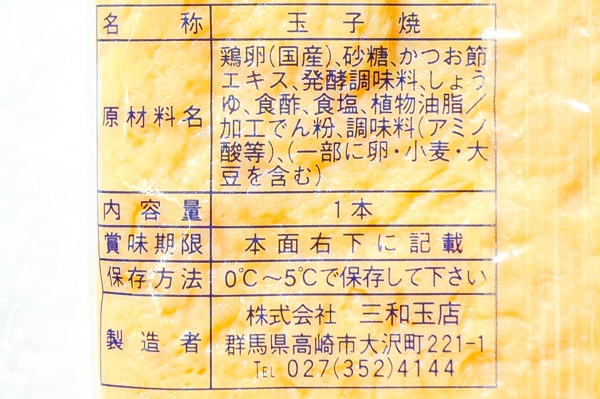 名称 玉子焼
原材料名 鶏卵(国産)、砂糖、かつお節
エキス、発酵調味料、しょう
ゆ、食酢、食塩、植物油脂／
加工でん粉、調味料(アミノ
酸等)、(一部に卵・小麦・大
豆を含む)
内容量 1本
賞味期限 本面右下に記載
保存方法 0℃～5℃で保存して下さい
製造者 株式会社 三和玉店
群馬県高崎市大沢町221-1
TEL 027(352)4144